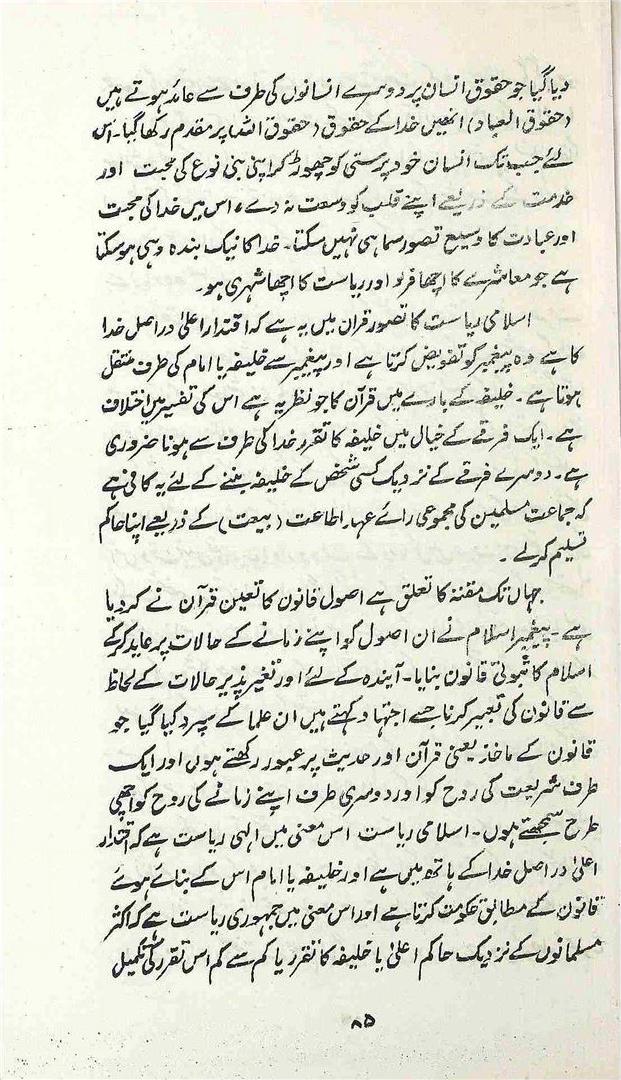 دیا گیا جو حقوق انسان پر دوسرے انسانوں کی طرف سے عائد ہوتے ہیں
(حقوق العباد) انھیں خدا کے حقوق (حقوق اللہ) پر مقدم رکھا گیا۔ اس
لئے جب تک انسان خود پرستی کو چھوڑ کر اپنی بنی نوع کی محبت اور
خدمت کے ذریعے اپنے قلب کو وسعت نہ دے، اس میں خدا کی محبت
اور عبادت کا وسیع تصور سما ہی نہیں سکتا۔ خدا کا نیک بندہ وہی ہو سکتا
ہے جو معاشرے کا اچھا فرد اور ریاست کا اچھا شہری ہو۔
اسلامی ریاست کا تصور قرآن میں یہ ہے کہ اقتدار اعلیٰ در اصل خدا
کا ہے وہ پیغمبر کو تفویض کرتا ہے اور پیغمبر سے خلیفہ یا امام کی طرف منتقل
ہوتا ہے۔ خلیفہ کے بارے میں قرآن کا جو نظریہ ہے اس کی تفسیر میں اختلاف
ہے۔ ایک فرقے کے خیال میں خلیفہ کا تقرر خدا کی طرف سے ہونا ضروری
ہے۔ دوسرے فرقے کے نزدیک کسی شخص کے خلیفہ بننے کے لئے یہ کافی ہے
کہ جماعت مسلمین کی مجموعی رائے عہد اطاعت (بیعت) کے ذریعے اپنا حاکم
تسلیم کر لے۔
جہاں تک مقننہ کا تعلق ہے اصول قانون کا تعین قرآن نے کر دیا
ہے۔ پیغمبر اسلام نے ان اصول کو اپنے زمانے کے حالات پر عاید کر کے
اسلام کا ثبوتی قانون بنایا۔ آیندہ کے لئے اور تغیر پذیر حالات کے لحاظ
سے قانون کی تعبیر کرنا جسے اجتہاد کہتے ہیں ان علما کے سپرد کیا گیا جو
قانون کے ماخذ یعنی قرآن اور حدیث پر عبور رکھتے ہوں اور ایک
طرف شریعت کی روح کو اور دوسری طرف اپنے زمانے کی روح کو اچھی
طرح سمجھتے ہوں۔ اسلامی ریاست اس معنی میں الہی ریاست ہے کہ اقتدار
اعلیٰ در اصل خدا کے ہاتھ میں ہے اور خلیفہ یا امام اس کے بنائے ہوئے
قانون کے مطابق حکومت کرتا ہے اور اس معنی میں جمہوری ریاست ہے کہ اکثر
مسلمانوں کے نزدیک حاکم اعلیٰ یا خلیفہ کا تقرر یا کم سے کم اس تقرر کی تکمیل
۸۵